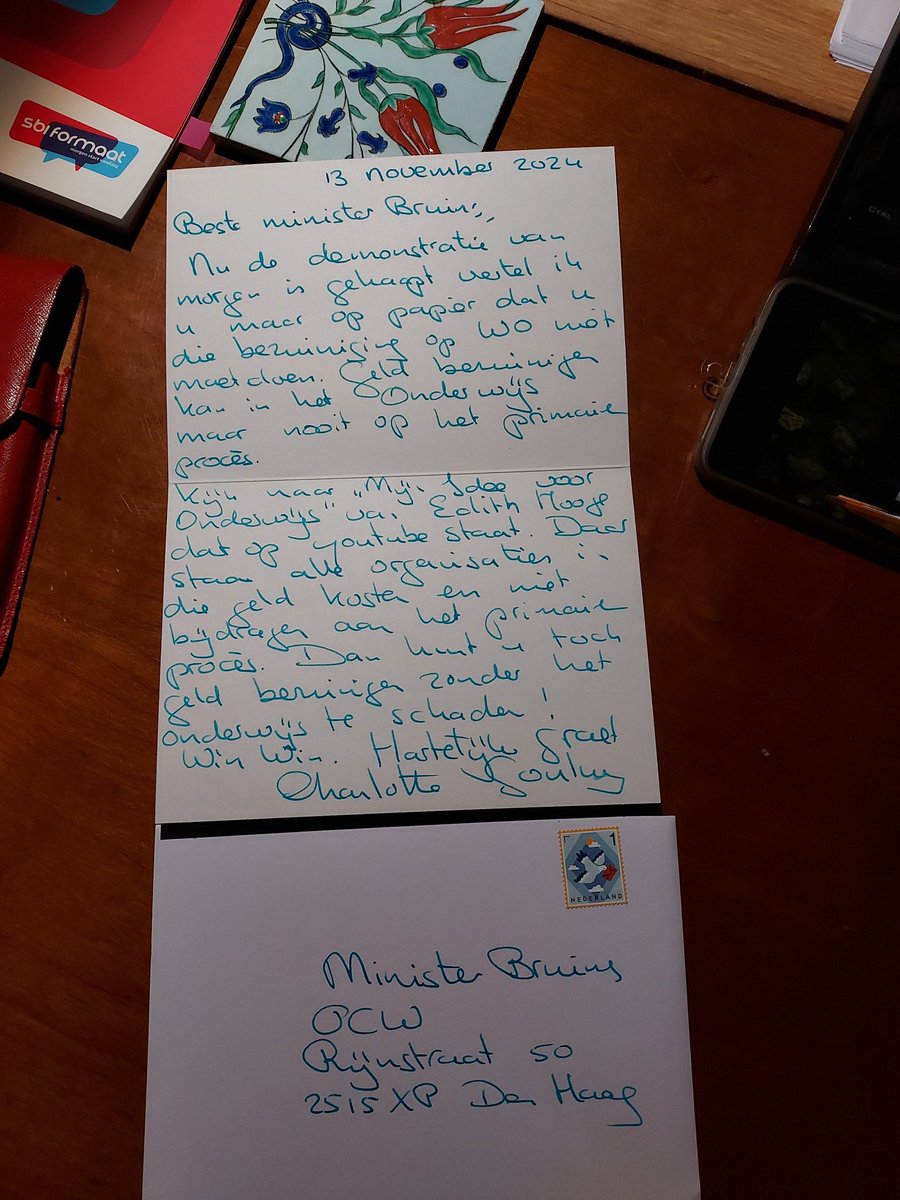 sbi formaat
morgen start vandaag
CTRL
13 november 2024
Beste minister Bruins,
Nu de demonstratie van
morgen is gekapt vertel ik
u maar op papier dat u
die bezuiniging op WO niet
moet doen. Geld bezuinigen
kan in het Onderwijs
maar nooit op het primaire
procès.
Kijk naar "Mijn Idee voor
Onderwijs" van Edith Hooge
dat op youtube staat. Daar
staan alle organisaties in
die geld kosten en niet
bijdragen aan het primaire
procès. Dan kunt u toch
geld bezuinigen zonder het
onderwijs te schaden!
Win Win. Hartelijke groet
Charlotte
1
NEDERLAND
Minister Bruins
OCW
Rijnstraat 50
2515 XP Den Haag